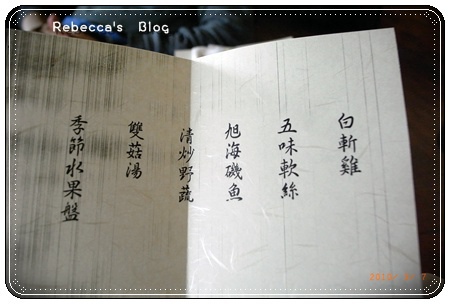 Rebecca's Blog
白斬雞
五味軟絲
旭海磯魚
清炒野蔬
雙菇湯
季節水果盤